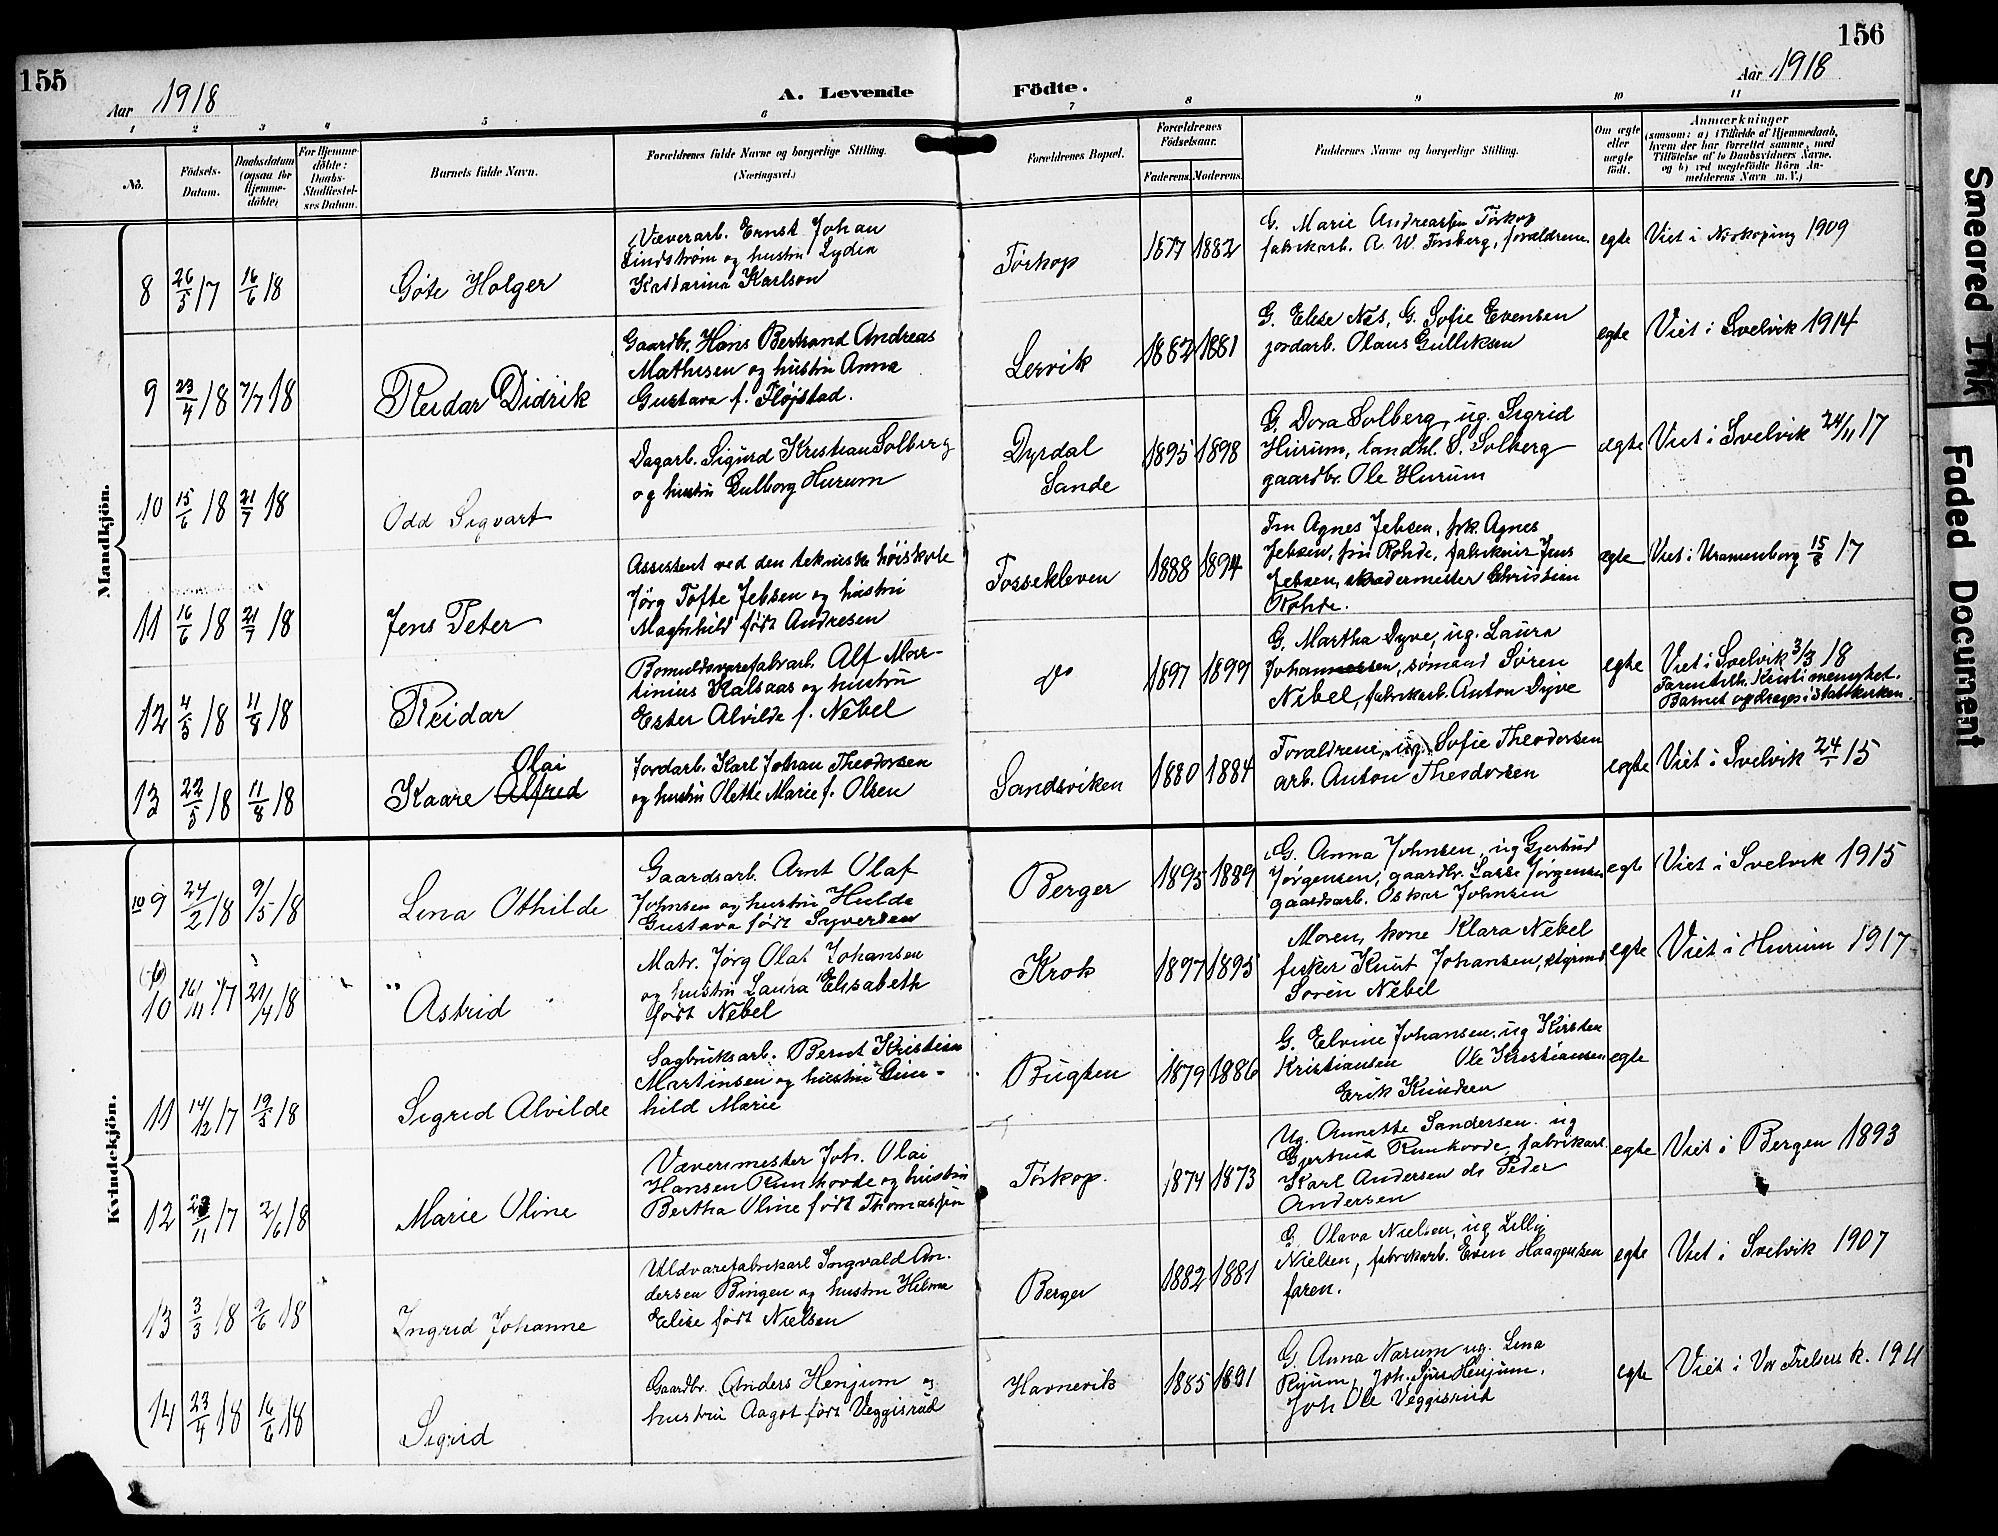 155
156
Aar 1918
A. Levende
Födte.
Aar 1918
1 2 3 4 5 6 7 8 9 10 11
No.
Födsels-
Datum.
Daabsdatum
(ogsaa for
Hjemme-
döbte)
For Hjemme-
döbte:
Daabs-
Stadfæstel-
ses Datum.
Barnets fulde Navn.
Forældrenes fulde Navne og borgerlige Stilling.
(Næringsvei.)
Forældrenes Bopæl.
Forældrenes
Födselsaar.
Faderens.
Moderens.
Faddernes Navne og borgerlige Stilling.
Om ægte
eller
uægte
födt.
Anmærkninger
(saasom: a) i Tilfælde af Hjemmedaab,
hvem der har forrettet samme, med
Tilföielse af to Daabsvidners Navne.
og b) ved uægtefödte Börn An-
melderens Navn m. V.)
Mandkjön.
8 26/5 17 16/6 18 Göte Holger
Væverarb. Ernst Johan
Lindstrøm og hustru Lydia
Kattarina Karlson
Törkop 1877 1882
G. Marie Andreassen Törkop
fabrikarb. A. W. Forsberg, foraldrene
egte Viet i Norköping 1909
9 23/4 18 7/7 18 Reidar Didrik
Gaardbr. Hans Bertrand Andreas
Mathisen og hustru Anna
Gustava f. Fløjstad.
Lervik 1882 1881
G. Elise Næs, G. Sofie Evensen
jordarb. Olaus Gulliksen
egte Viet i Svelvik 1914
10 15/6 18 21/7 18 Odd Sigvart
Dagarb. Sigurd Kristian Solberg
og hustru Gulborg Hurum
Dyrdal
Sande
1895 1898
G. Dora Solberg, ug. Sigrid
Hurum, landhl. S. Solberg
gaardbr. Ole Hurum
ægte Viet i Svelvik 24/11 17
11 16/6 18 21/7 18 Jens Peter
Assistent ved den tekniske høiskole
Jørg Tofte Jebsen og hustru
Magnhild født Andresen
Fossekleven 1888 1894
Fru Agnes Jebsen, frk. Agnes
Jebsen, fru Rohde, fabrikeier Jens
Jebsen, skrædermester Christian
Rohde.
ægte Viet i Uranienborg 15/8 17
12 4/5 18 11/8 18 Reidar
Bomuldsvarefabarb. Alf Mar-
tinius Kalsaas og hustru
Ester Alvilde f. Nebel
do 1897 1899
G. Martha Dyve, ug. Laura
Johannessen, sømand Søren
Nebel, fabrikarb. Anton Dyve
egte Viet i Svelvik 3/3 18
Faren tilh. Kristi menighet.
Barnet opdrages i statskirken.
13 22/5 18 11/8 18 Olai
Kaare Alfred
Jordarb. Karl Johan Theodorsen
og hustru Olette Marie f. Olsen
Sandsviken 1880 1884
Foraldrene, ug. Sofie Theodorsen
arb. Anton Theodorsen
egte Viet i Svelvik 24/1 15
Kvindekjön.
10 9 24/2 18 9/5 18 Lina Othilde
Gaardsarb. Arnt Olaf
Johnsen og hustru Hulda
Gustava født Syversen
Berger 1895 1889
G. Anna Johnsen, ug Gjertrud
Jørgensen, gaardbr. Lasse Jørgensen
gaardsarb. Oskar Johnsen
egte Viet i Svelvik 1915
10 16/11 17 21/4 18 Astrid
Matr. Jørg Olaf Johansen
og hustru Laura Elisabeth
født Nebel
Krok 1897 1895
Moren, kone Klara Nebel
fisker Knut Johansen,
Søren Nebel
egte Viet i Hurum 1917
11 14/12 17 19/5 18 Sigrid Alvilde
Sagbruksarb. Bernt Kristian
Martinsen og hustru Gun-
hild Marie
Bugten 1879 1886
G. Elvine Johansen, ug Kirsten
Kristiansen Ole Kristiansen
Erik Knudsen
egte
12 17 2/6 18 Marie Oline
Værermester Joh. Olai
Hansen Runhovde og hustru
Bertha Oline født Thomassen
Törkop. 1874 1873
Ug. Annette Sandersen. ug
Gjertrud Runhovde, fabrikarb.
Karl Andersen do Peder
Andersen
egte Viet i Bergen 1893
13 3/3 18 9/6 18 Ingrid Johanne
Uldvarefabrikarb Ingvald An-
dersen Bingen og hustru Hilma
Elise født Nielsen
Berger 1882 1881
G. Olava Nielsen, ug Lilly
Nielsen, fabrikarb. Even Haagensen
faren.
egte Viet i Svelvik 1907
14 23/4 18 16/6 18 Sigrid
Gaardbr. Anders Henjum og
hustru Aagot født Veggisrud
Havnevik 1885 1891
G. Anna Narum ug. Lina
Ryum, Joh. Sjur Henjum,
Joh Ole Veggisrud
egte Viet i Vor Frelsers k. 1911
Smeared Ink
Faded Document